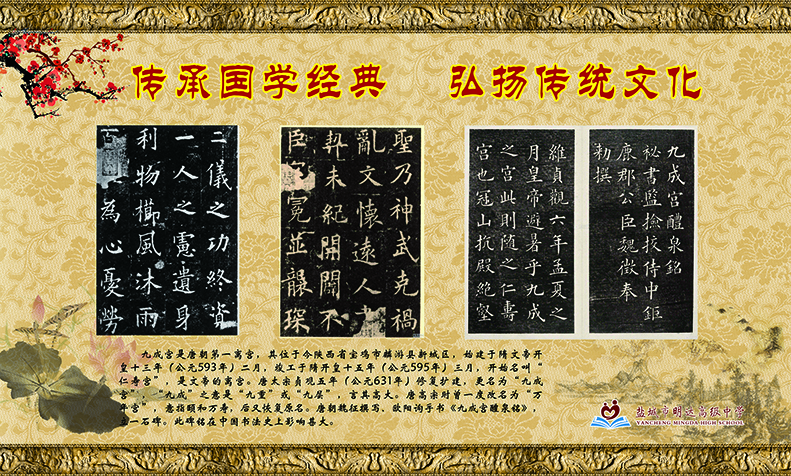 传承国学经典 弘扬传统文化
二儀之功終資
一人之慮遺身
利物櫛風沐雨
百為心憂勞
聖乃神武克禍
亂文懷遠人
契未紀開闢不
臣冠冕並襲琛
九成宮醴泉銘
祕書監撿挍侍中鉅
鹿郡公臣魏徵奉
勑撰
維貞觀六年孟夏之
月皇帝避暑乎九成
之宮此則隨之仁壽
宮也冠山抗殿絕壑
九成宫是唐朝第一离宫,其位于今陕西省宝鸡市麟游县新城区,始建于隋文帝开
皇十三年(公元593年)二月,竣工于隋开皇十五年(公元595年)三月,开始名叫“
仁寿宫”,是文帝的离宫。唐太宗贞观五年(公元631年)修复扩建,更名为“九成
宫”,“九成”之意是“九重”或“九层”,言其高大。唐高宗时曾一度改名为“万
年宫”,意指颐和万寿,后又恢复原名。唐朝魏征撰写、欧阳询手书《九成宫醴泉铭》,
立一石碑。此碑铭在中国书法史上影响甚大。
盐城市明达高级中学
YANCHENG MINGDA HIGH SCHOOL